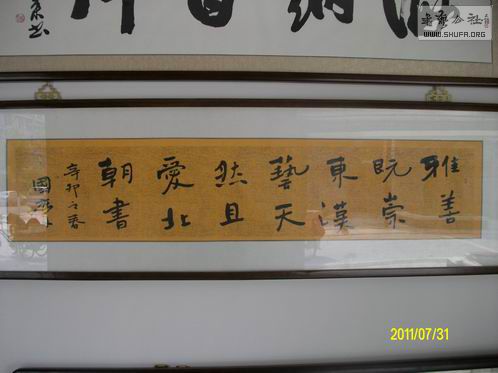 书法公社
WWW.SHUFA.ORG
雅善
既崇
東漢
藝天
然且
愛北
朝書
辛卯之春
國
2011/07/31